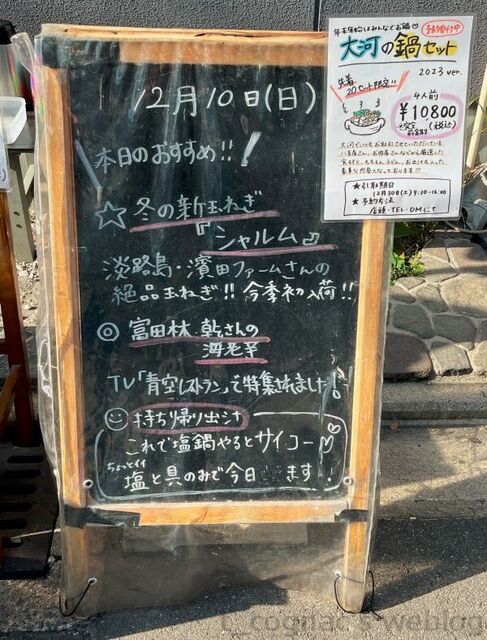 12月10日(日)
本日のおすすめ!!
☆冬の新玉ねぎ
『シャルム』
淡路島・濱田ファームさんの
絶品玉ねぎ!! 今季初入荷!!
◎富田林 乾さんの
海老芋
TV「青空レストラン」で特集されました!
持ち帰り出汁
これで塩鍋やるとサイコー♡
ちょっとイイ
塩と具のみで今日 ます!
年末年始はみんなでお鍋
予約受付中
大河の鍋セット
2023 ver.
先着
20セット限定!!
4人前
¥10800
(税込)
★引取期日
12月30日(土) 9:30-16:00
★予約方法
店頭・TEL・DMにて
t_cognac's weblog